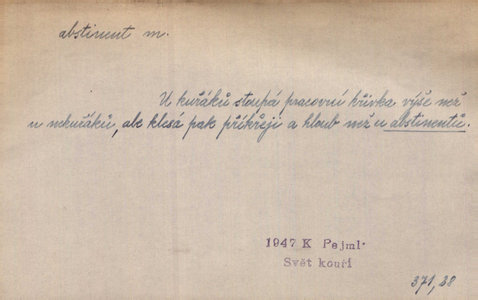 abstinent m.
U kuřáků stoupá pracovní křivka výše než
u nekuřáků, ale klesá pak příkřeji a hloub než u abstinentů.
1947 K Pejml
Svět kouří
371, 28